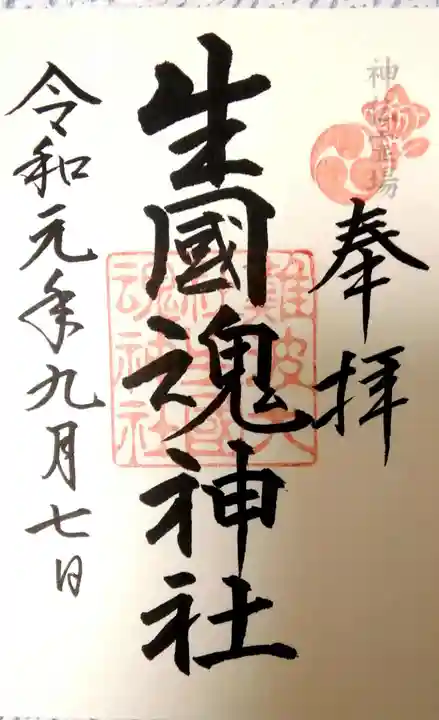 神仏霊場
奉拝
生國魂神社
難波大社生國魂神社
令和元年九月七日